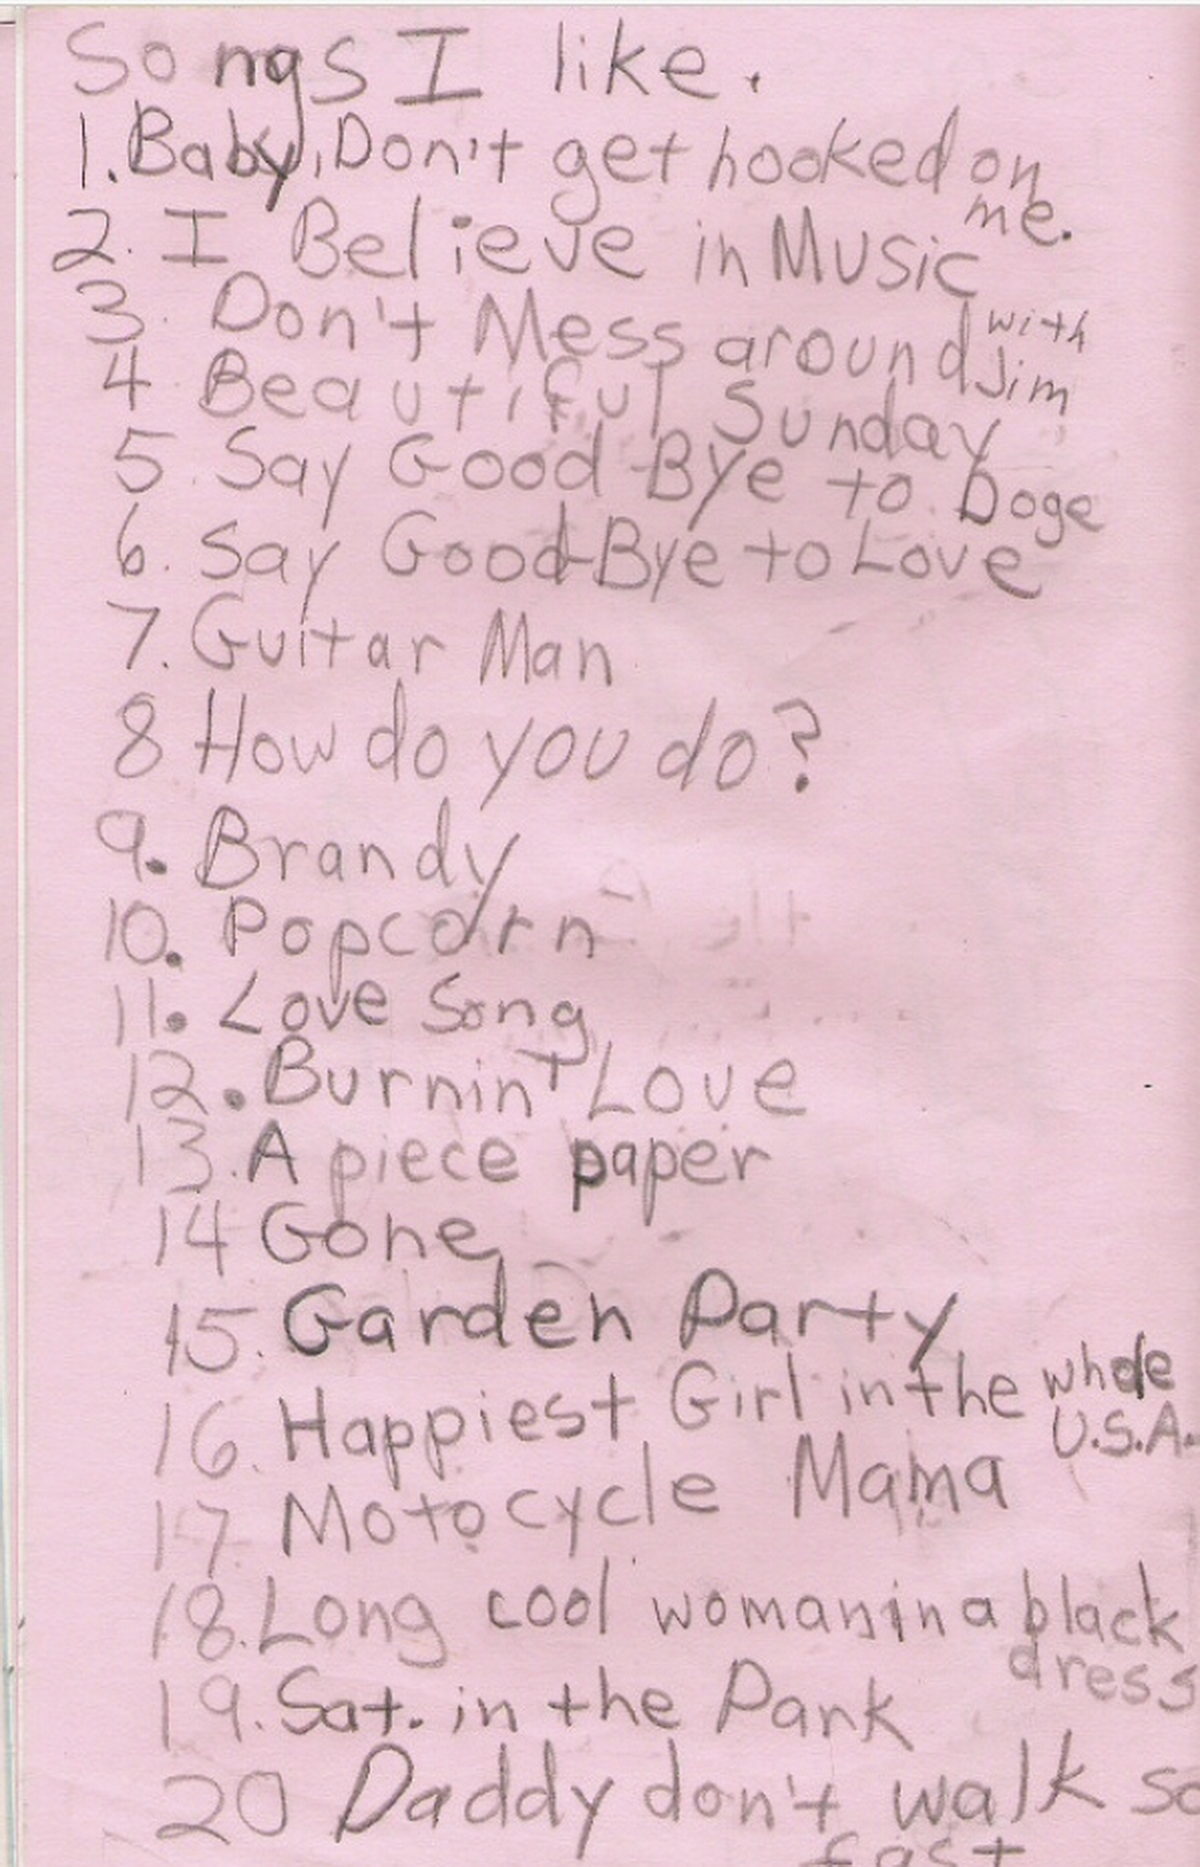 Songs I like.
1. Baby, Don't get hooked on
me.
2. I Believe in Music
3. Don't Mess around with
Jim
4 Beautiful Sunday
5. Say Good Bye to Doge
6. Say Good-Bye to Love
7. Guitar Man
8 How do you do?
9. Brandy
10. Popcorn
11. Love Song
12. Burnin' Love
13. A piece paper
14 Gone
15. Garden Party
16. Happiest Girl in the whole
U.S.A.
17. Motocycle Mama
18. Long cool woman in a black
dress
19. Sat. in the Park
20 Daddy don't walk so
fast